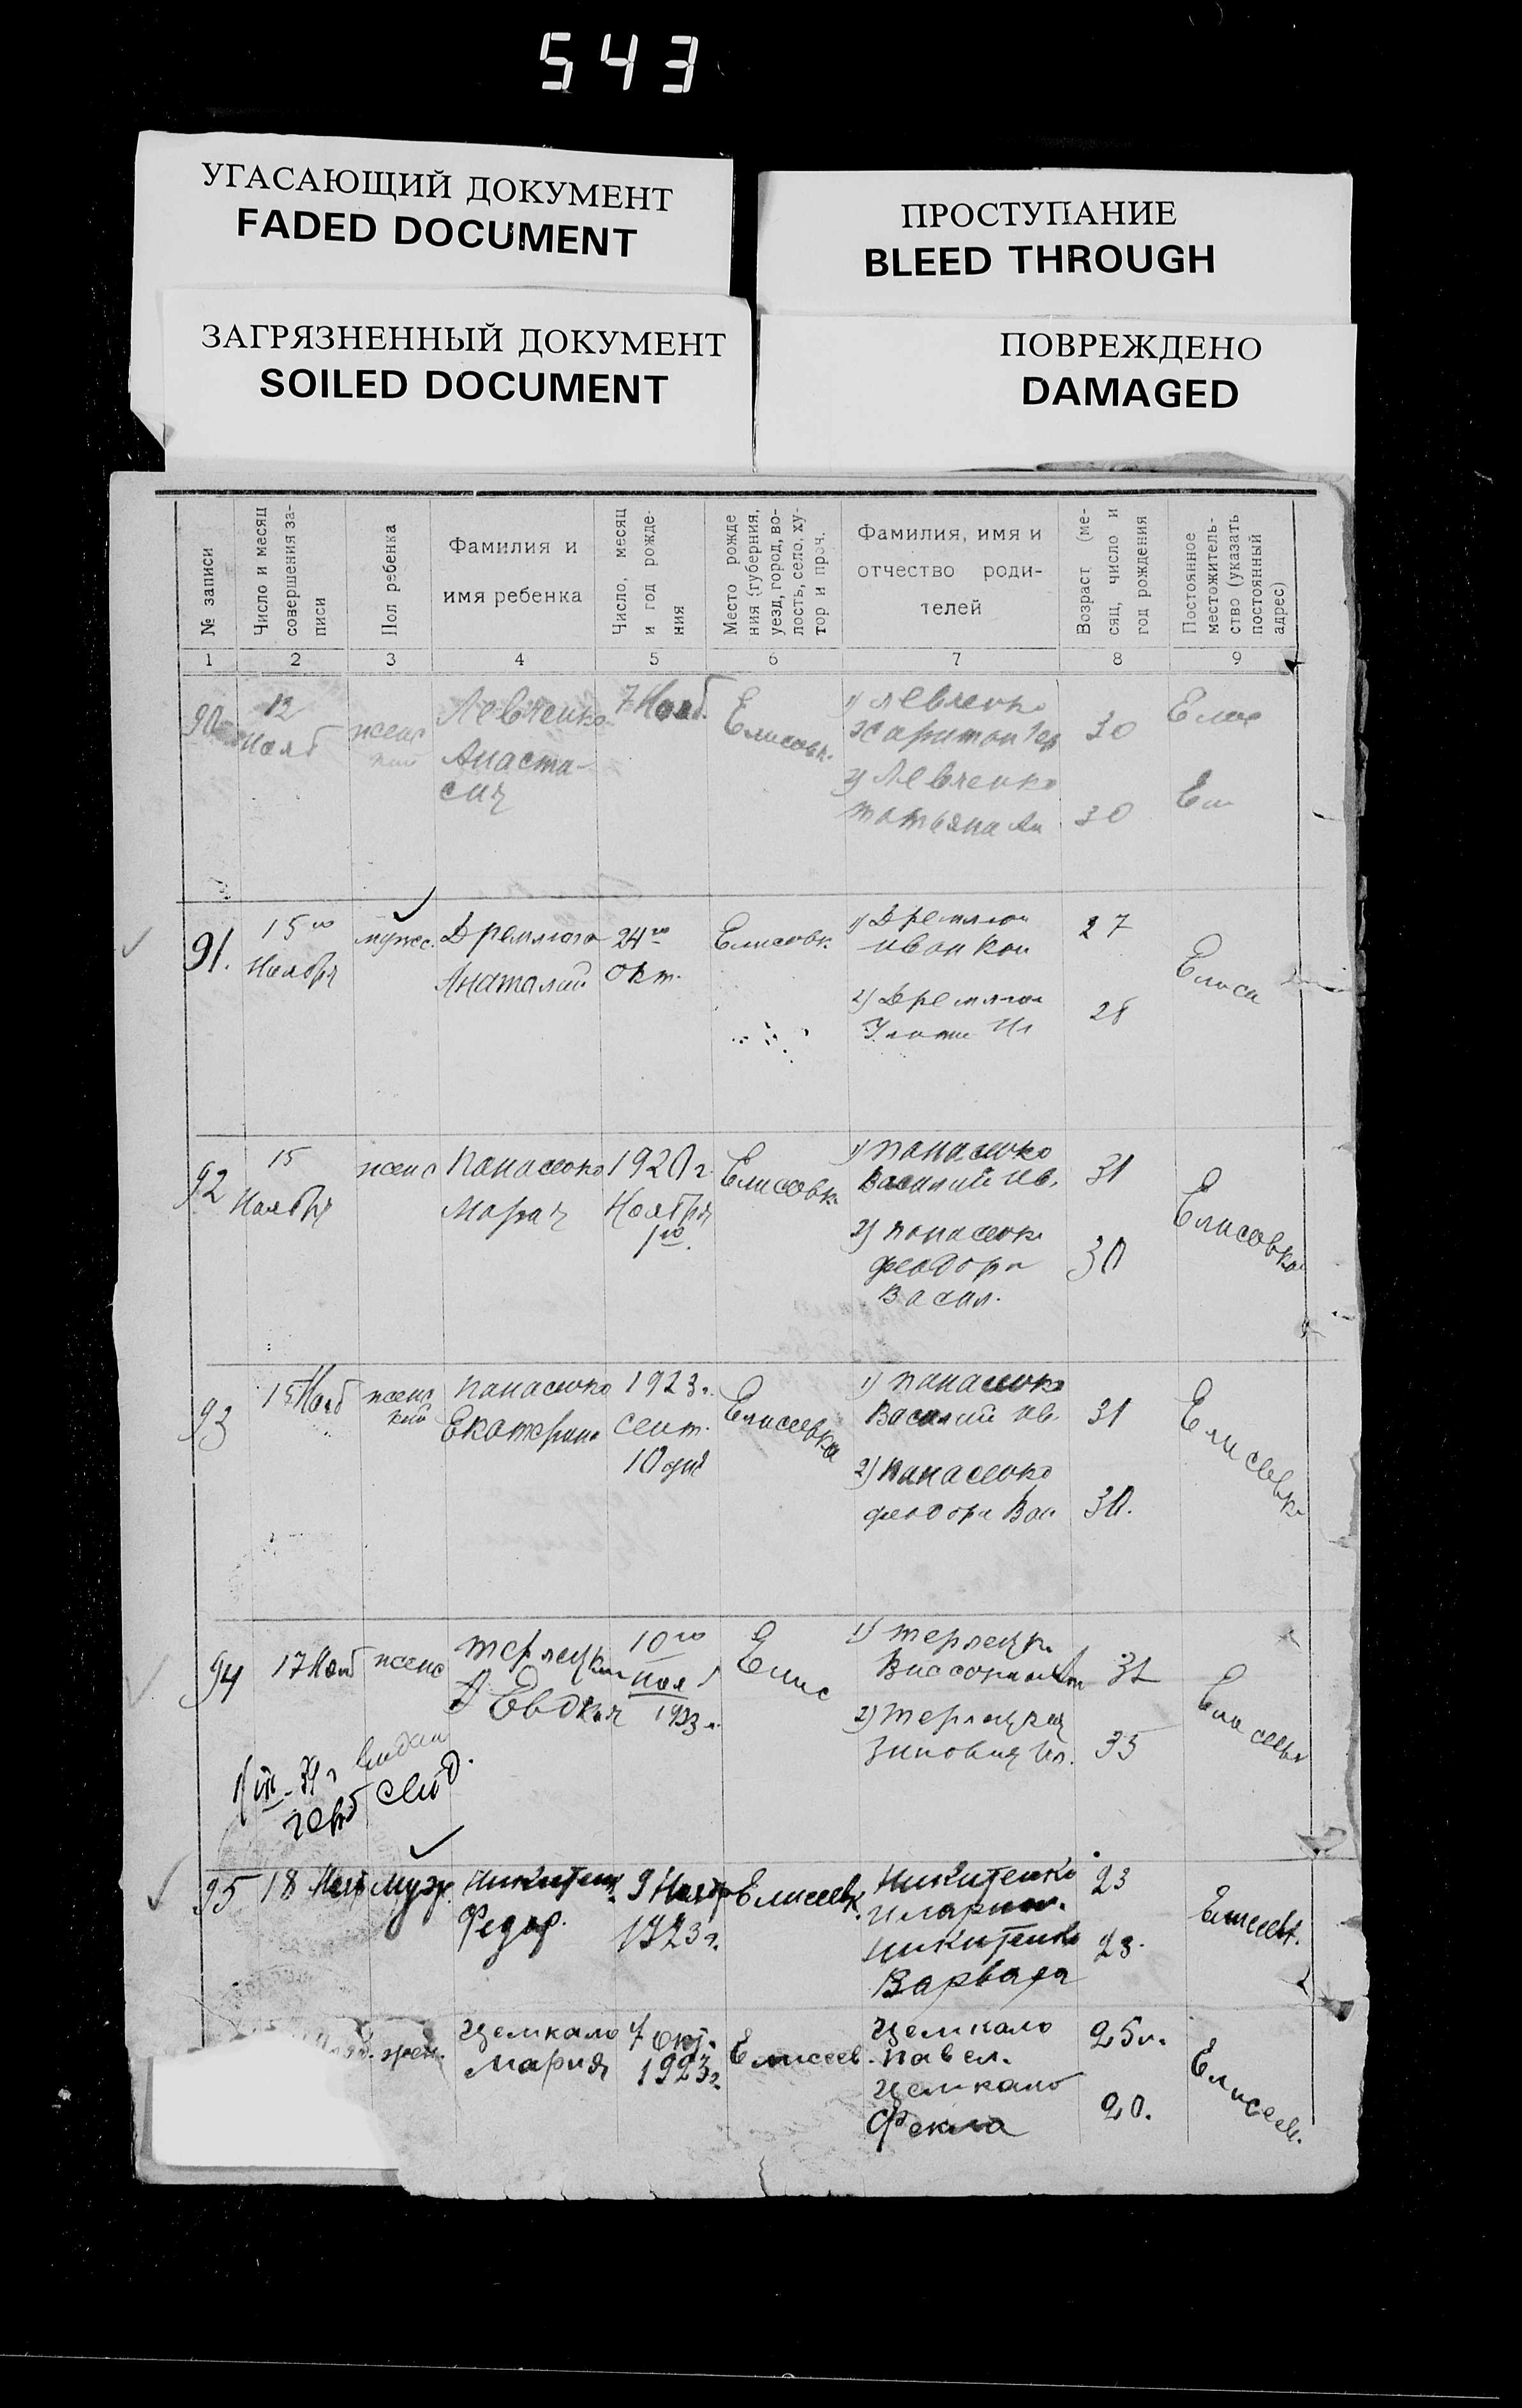 543
УГАСАЮЩИЙ ДОКУМЕНТ
FADED DOCUMENT
ПРОСТУПАНИЕ
BLEED THROUGH
ЗАГРЯЗНЕННЫЙ ДОКУМЕНТ
SOILED DOCUMENT
ПОВРЕЖДЕНО
DAMAGED
№ записи
Число и месяц
совершения за-
писи
Пол ребенка
Фамилия и
имя ребенка
Число, месяц
и год рожде-
ния
Место рожде
ния (губерния,
уезд, город, во-
лость, село, ху-
тор и проч.
Фамилия, имя и
отчество роди-
телей
Возраст (ме-
сяц, число и
год рождения
Постоянное
местожитель-
ство (указать
постоянный
адрес)
1 2 3 4 5 6 7 8 9
90
12
Нояб
женс
кий
Левченко
Анаста-
сия
7 Нояб.
Елисовк.
1) Левченко
Харитон
30
2) Левченко
Татьяна
30
Елис
Ел
91.
15го
Ноября
мужс.
Дремлюга
Анаталий
24го
окт.
Елисовк
1) Дремлюг
Иван Кон
27
2) Дремлюг
28
Елиси
92
15
Ноября
женс
Панасенко
Мария
1920 г
Ноября
1го.
Елисовк
1) Панасенко
Василий Ив.
31
2) Панасенк
Феодора
Васил.
30
Елисовка
93
15 Нояб
женс
кий
Панасенко
Екатерина
1923 г.
сент.
10 дня
Елисеевка
1) Панасенко
Василий Ив.
31
2) Панасенко
Феодора Вас
30.
Елисеевк
94
17 Нояб
женс
Терлецкая
Евдокия
10го
Ноя
1923 г.
Елис
1) Терлецк
Виссарион
31
2) Терлецкая
Зиновия Ил.
35
Елисеевк
видан
95
18
муж.
Никитенк
Федор.
9 Нояб
1923 г.
Елисеевк.
Никитенко
Иларион.
23
Никитенко
Варвара
23.
Елисеев.
жен.
Цемкало
Мария
7 окт.
1923 г.
Елисеев.
Цемкало
Павел.
25 л.
Цемкало
Фекла
20.
Елисеев.